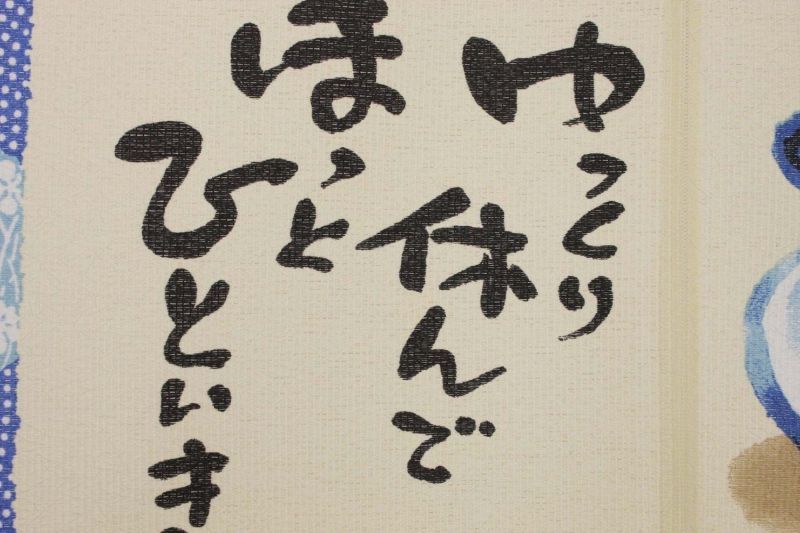 ゆっくり
休んで
ほっと
ひといき